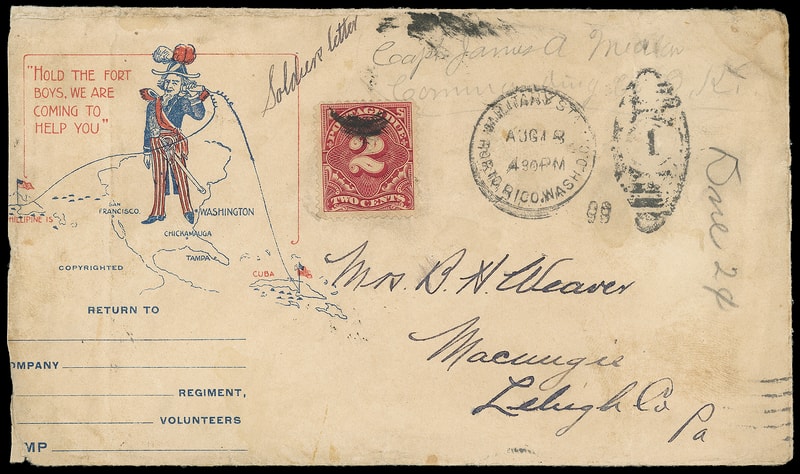 "HOLD THE FORT
BOYS, WE ARE
COMING TO
HELP YOU"
Soldiers letter
Capt James A
Commanding
POSTAGE DUE
2
TWO CENTS
MILITARY STA.
AUG 18
4 30 PM
PORTO RICO, WASH. D.C.
98
1
Due 2¢
SAN
FRANCISCO.
WASHINGTON
CHICKAMAUGA
TAMPA
CUBA
HILLIPINE IS
COPYRIGHTED
RETURN TO
OMPANY
REGIMENT,
VOLUNTEERS
MP
Mrs. B. H. Weaver
Macungie
Lehigh Co
Pa